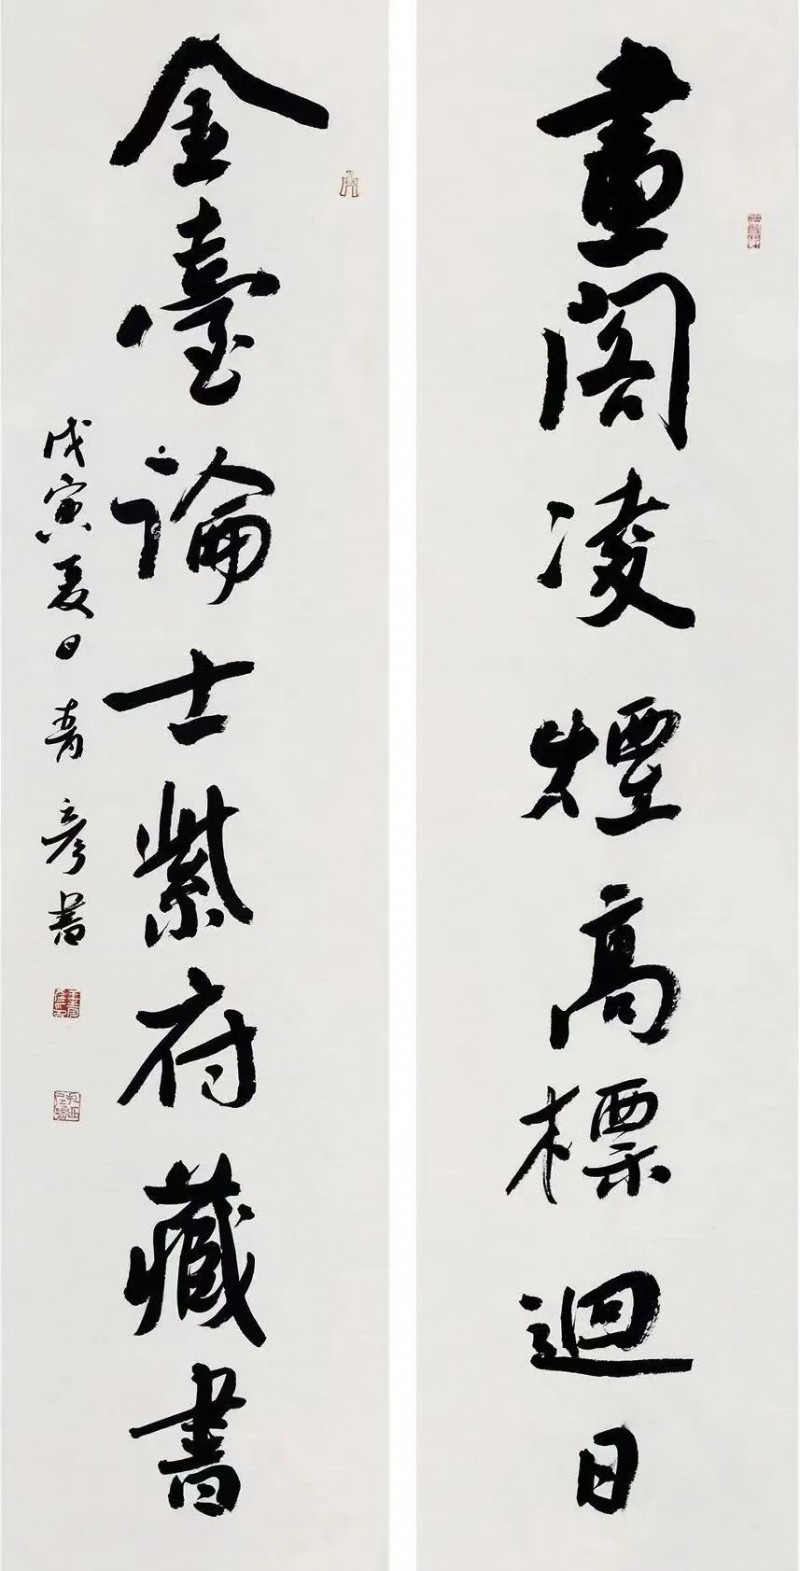 畫閣凌煙高標迴日
金臺論士紫府藏書
戊寅夏日 青彦書